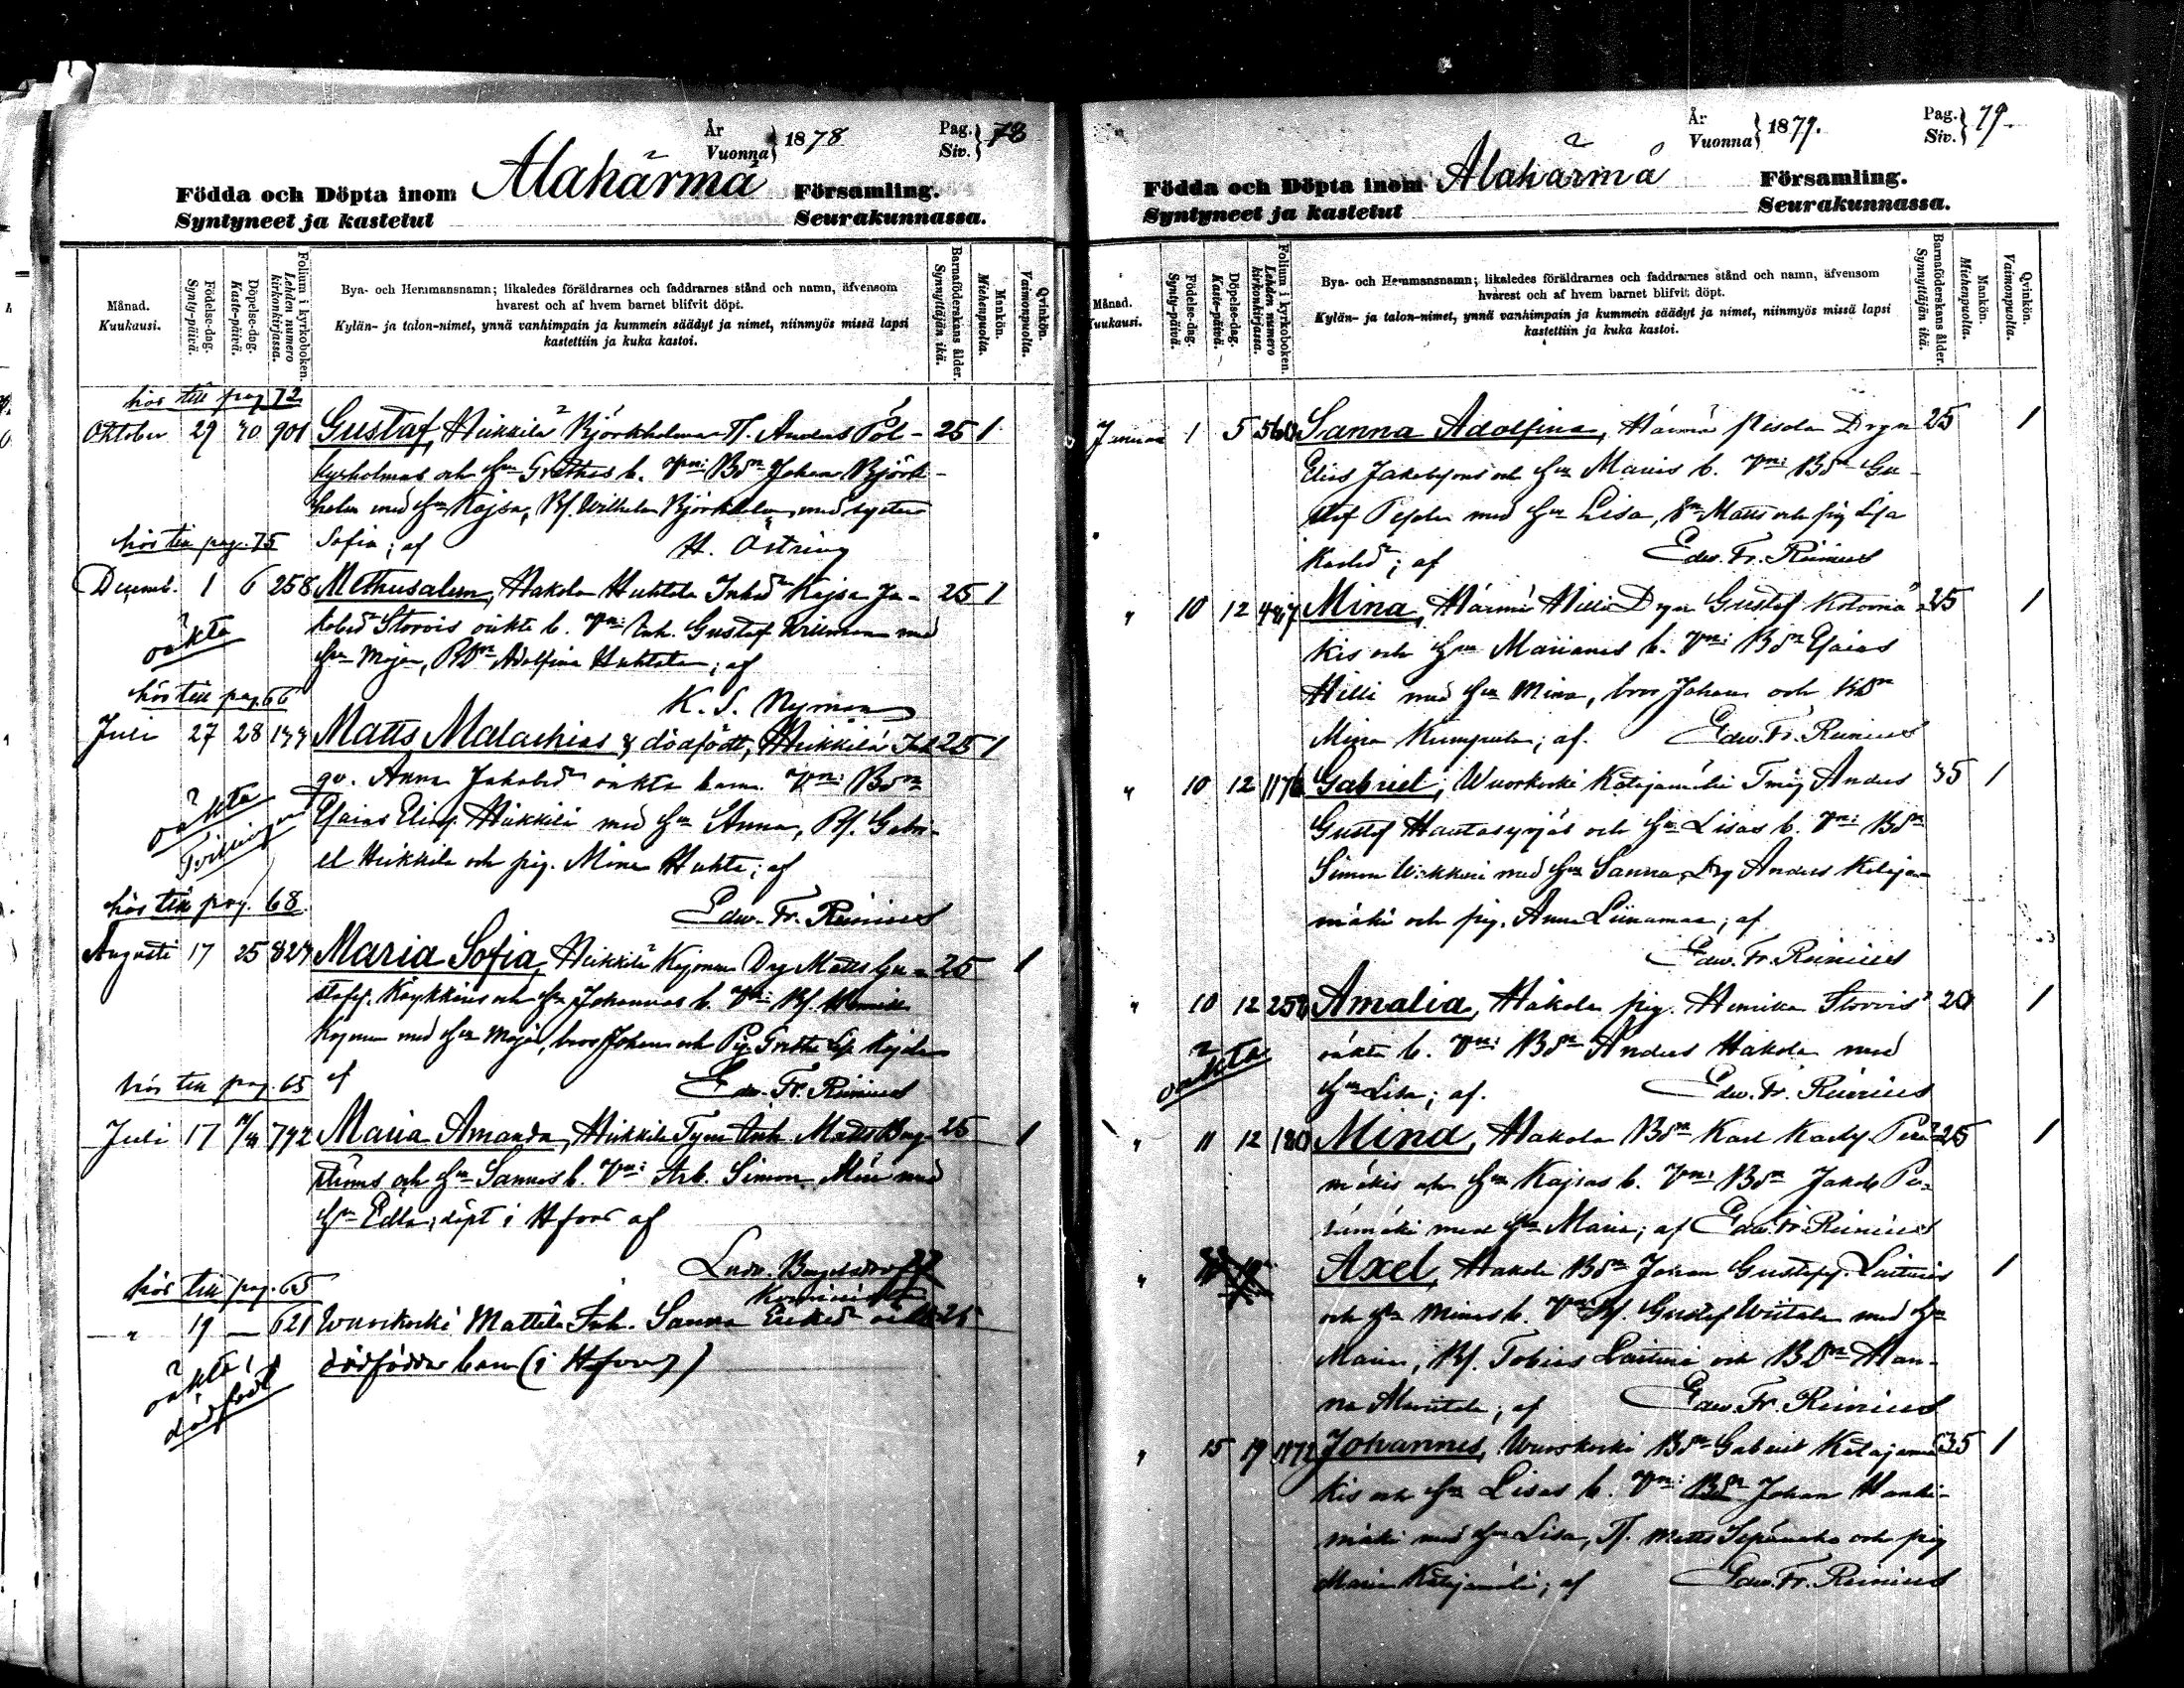 År
Vuonna } 1878
Pag.
Siv. } 78
Födda och Döpta inom Alahärmä Församling.
Syntyneet ja kastetut Seurakunnassa.
Månad.
Kuukausi.
Födelse-dag.
Synty-päivä.
Döpelse-dag.
Kaste-päivä.
Folium i kyrkoboken.
Lehden numero kirkonkirjassa.
Bya- och Hemmansnamn; likaledes föräldrarnes och faddrarnes stånd och namn, äfvensom
hvarest och af hvem barnet blifvit döpt.
Kylän- ja talon-nimet, ynnä vanhimpain ja kummein säädyt ja nimet, niinmyös missä lapsi
kastettiin ja kuka kastoi.
Barnaföderskans ålder.
Synnyttäjän ikä.
Mankön.
Miehenpuolta.
Qvinkön.
Vaimonpuolta.
hör till pag 72
Oktober 29 30 901 Gustaf, Heikkilä Björkholmar Tf. Anders Pöl- 25 1
kyrholmas och hu Grethas b. Vn: Bdn Johan Björk-
holm med hu Kajsa, Bs. Wilhelm Björkholm med syster
hör till pag. 75 Sofia; af H. Östring
Decemb. 1 6 258 Methusalem, Hakola Huhtala Inhd Kajsa Ja- 25 1
kobsd Storvis oäkta b. Vn: Inh. Gustaf Willman med
oäkta hu Maja, BDn Adolfina Huhtala; af
hör till pag. 66 K. S. Nyman
Juli 27 28 133 Matts Malachias & dödfödt, Heikkilä Inh 25 1
qv. Anna Jakobsdr oäkta barn. Vn: Bdn
oäkta Esaias Eliass. Heikkilä med hu Anna, Bs. Gabri-
Tvillingar el Heikkilä och pig. Mina Huhta; af
hör till pag. 68. Edw. Fr. Reinius
Augusti 17 25 827 Maria Sofia, Heikkilä Dr Matts Gu- 25 1
stafss. och hu Johannas b. Vn: Bs. Henrik
med hu Maja, bror Johan och Pig. Gretha
hör till pag. 65 af Edw. Fr. Reinius
Juli 17 792 Maria Amanda, Heikkilä Inh. Matts Berg- 25 1
ströms och hu Sannas b. Vn: Arb. Simon med
hu Edla; döpt i Hfors af
Ludv.
hör till pag. 65
" 19 — 621 Wuoskoski Mattila Inh. Sanna Ericsdr oäkta 25
oäkta dödfödda barn (i Hfors)
dödfödt
År
Vuonna } 1879.
Pag.
Siv. } 79.
Födda och Döpta inom Alahärmä Församling.
Syntyneet ja kastetut Seurakunnassa.
Månad.
Kuukausi.
Födelse-dag.
Synty-päivä.
Döpelse-dag.
Kaste-päivä.
Folium i kyrkoboken.
Lehden numero kirkonkirjassa.
Bya- och Hemmansnamn; likaledes föräldrarnes och faddrarnes stånd och namn, äfvensom
hvarest och af hvem barnet blifvit döpt.
Kylän- ja talon-nimet, ynnä vanhimpain ja kummein säädyt ja nimet, niinmyös missä lapsi
kastettiin ja kuka kastoi.
Barnaföderskans ålder.
Synnyttäjän ikä.
Mankön.
Miehenpuolta.
Qvinkön.
Vaimonpuolta.
Januari 1 5 560 Sanna Adolfina, Härmä Pesola Drgn 25 1
Elias Jakobssons och hu Marias b. Vn: Bdn Gu-
staf Pesola med hu Lisa, Matts och pig Lisa
Karlsdr; af Edw. Fr. Reinius
" 10 12 487 Mina, Härmä Hilli Drgn Gustaf 25 1
kis och hu Marianas b. Vn: Bdn Esaias
Hilli med hu Mina, bror Johan och BDn
Mina Kumpula; af. Edw. Fr. Reinius
" 10 12 1176 Gabriel, Wuoskoski Katajamäki Tmag Anders 35 1
Gustaf Hautasyrjäs och hu Lisas b. Vn: Bdn
Simon Wikkari med hu Sanna, Drg Anders Kataja-
mäki och pig. Anna Liinamaa; af
Edw. Fr. Reinius
" 10 12 258 Amalia, Hakola pig. Henrika Storvis 20 1
oäkta oäkta b. Vn: Bdn Anders Hakola med
hu Lisa; af. Edw. Fr. Reinius
" 11 12 180 Mina, Hakola Bdn Karl Karls. Perä- 25 1
mäkis och hu Kajsas b. Vn: Bdn Jakob Pe-
rämäki med hu Maria; af Edw. Fr. Reinius
" Axel, Hakola Bdn Johan Gustafss. Laitinis 1
och hu Minas b. Vn: Bs. Gustaf Wiitala med hu
Maria, Bs. Tobias Laitini och BDn San-
na; af Edw. Fr. Reinius
" 15 19 1172 Johannes, Wuoskoski Bdn Gabriel Katajamä- 35 1
kis och hu Lisas b. Vn: Bdn Johan Hanki-
mäki med hu Lisa, Tf. Matts och pig
Maria Katajamäki; af Edw. Fr. Reinius